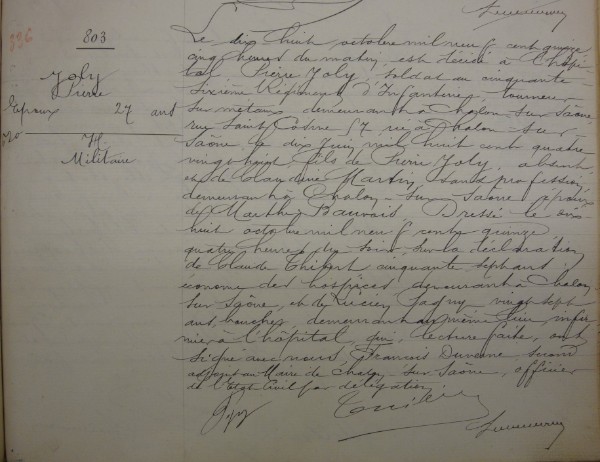 336
803
Joly
Pierre
Epoux 27 ans
H.
Militaire
Le dix huit octobre mil neuf cent quinze,
cinq heures du matin, est décédé à l'hôpi-
tal Pierre Joly, soldat au cinquante-
sixième Régiment d'Infanterie, tourneur
sur métaux demeurant à Chalon-sur-Saône,
rue Saint Cosme 57 né à Chalon-sur-
Saône le dix Juin mil huit cent quatre
vingt huit fils de Pierre Joly absent
et de Claudine Martin, sans profession,
demeurant à Chalon-sur-Saône époux
de Marthe Bauvais. Dressé le dix
huit octobre mil neuf cent quinze
quatre heures du soir, sur la déclaration
de Claude Thibert cinquante sept ans
économe des hospices, demeurant à Chalon
sur Saône, et de Lucien Jagny vingt sept
ans, boucher, demeurant au même lieu, infir-
mier à l'hôpital, qui, lecture faite, ont
signé avec nous, Francois second
adjoint au Maire de Chalon-sur-Saône, officier
de l'Etat-Civil par délégation